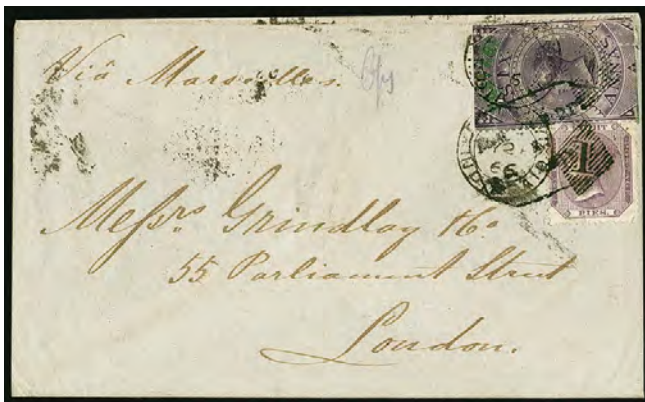 Viâ Marseilles.
SIX
ANNAS
66
1
PIES.
Messrs. Grindlay & Co
55 Parliament Street
London.